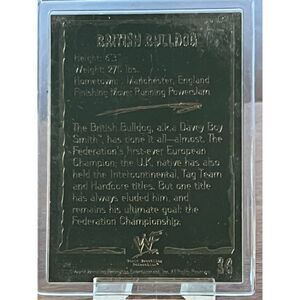 BRITISH BULLDOG
Height: 6'3"
Weight: 275 lbs.
Hometown: Manchester, England
Finishing Move: Running Powerslam
The British Bulldog, a.k.a Davey Boy
Smith™, has done it all—almost. The
Federation's first-ever European
Champion, the U.K. native has also
held the Intercontinental, Tag Team
and Hardcore titles. But one title
has always eluded him, and
remains his ultimate goal: the
Federation Championship.
World Wrestling
Federation